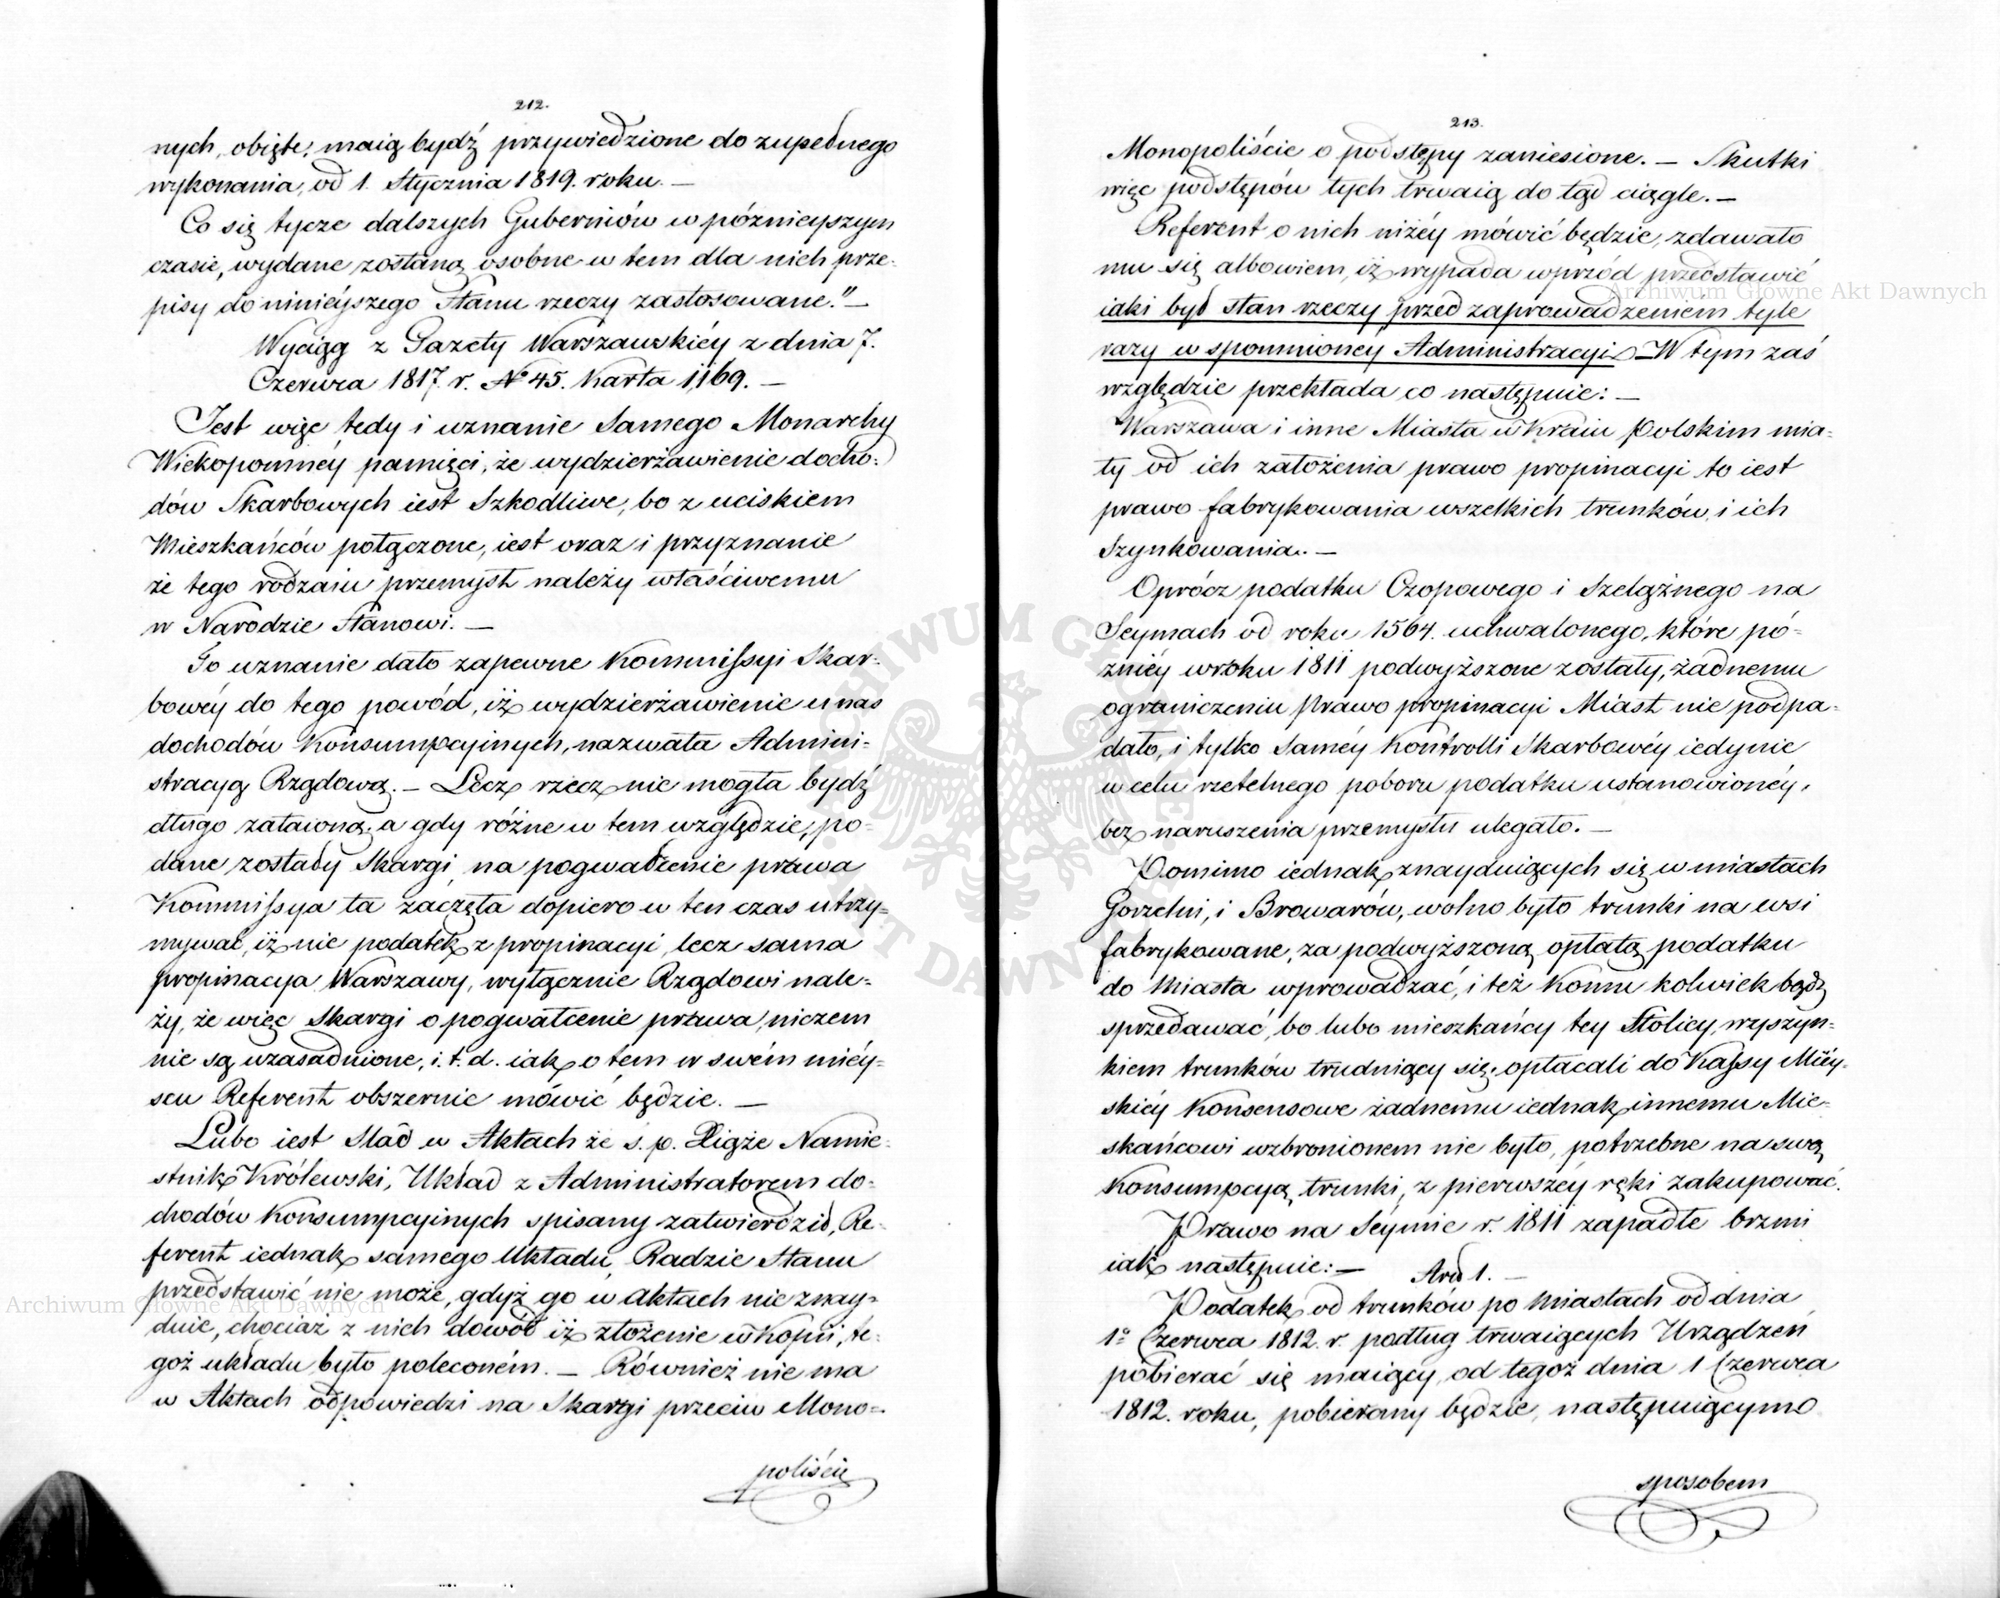 212.
nych, obięte, maią bydź przywiedzione do zupełnego
wykonania, od 1. Stycznia 1819. roku. —
Co się tycze dalszych Guberniów w późnieyszym
czasie, wydane zostaną osobne w tem dla nich prze-
pisy do ninieyszego Stanu rzeczy zastosowane." —
Wyciąg z Gazety Warszawskiéy z dnia 7.
Czerwca 1817. r. № 45. Karta 1,169. —
Jest więc tedy i uznanie Samego Monarchy
Wiekopomnéy pamięci, że wydzierżawienie docho-
dów Skarbowych iest Szkodliwe, bo z uciskiem
Mieszkańców połączone, iest oraz i przyznanie
że tego rodzaiu przemysł należy właściwemu
w Narodzie Stanowi. —
To uznanie dało zapewne Kommissyi Skar-
bowéy do tego powód, iż wydzierżawienie u nas
dochodów Konsumpcyinych, nazwała Admini-
stracyą Rządową. — Lecz rzecz nie mogła bydź
długo zataioną, a gdy różne w tem względzie, po-
dane zostały Skargi, na pogwałcenie prawa
Kommissya ta zaczęła dopiero w ten czas utrzy-
mywać, iż nie podatek z propinacyi, lecz sama
propinacya Warszawy, wyłącznie Rządowi nale-
ży, że więc Skargi o pogwałcenie prawa, niczem
nie są uzasadnione, i. t. d. iak o tem w swém miéy-
scu Referent obszernie mówić będzie. —
Lubo iest Slad w Aktach że ś. p. Xiąże Namie-
stnik Królewski, Układ z Administratorem do-
chodów Konsumpcyinych spisany zatwierdził, Re-
ferent iednak samego Układu, Radzie Stanu
przedstawić nie może, gdyż go w Aktach nie znay-
duie, chociaż z nich dowód iż złożenie w Kopii, te-
goż układu było poleconém. — Również nie ma
w Aktach odpowiedzi na Skargi przeciw Mono-
poliście
213.
Monopoliście o podstępy zaniesione. — Skutki
więc podstępów tych trwaią do tąd ciągle. —
Referent o nich niżéy mówić będzie, zdawało
mu się albowiem, iż wypada wprzód przedstawić
iaki był stan rzeczy przed zaprowadzeniem tyle
razy wspomnioney Administracyi — W tym zaś
względzie przekłada co następuie: —
Warszawa i inne Miasta w Kraiu Polskim mia-
ły od ich założenia prawo propinacyi to iest
prawo fabrykowania wszelkich trunków, i ich
Szynkowania. —
Oprócz podatku Czopowego i Szelążnego na
Seymach od roku 1564. uchwalonego, które pó-
źniéy w roku 1811 podwyższone zostały, żadnemu
ograniczeniu prawo propinacyi Miast nie podpa-
dało, i tylko Saméy Kontrolli Skarbowéy iedynie
w celu rzetelnego poboru podatku ustanowionéy,
bez naruszenia przemysłu ulegało. —
Pomimo iednak znayduiących się w miastach
Gorzelni, i Browarów, wolno było trunki na wsi
fabrykowane, za podwyższoną opłatą podatku
do Miasta wprowadzać, i też Komu kolwiek bądź
sprzedawać, bo lubo mieszkańcy tey Stolicy, wyszyn-
kiem trunków trudniący się, opłacali do Kassy Miéy-
skiéy Konsensowe żadnemu iednak innemu Mie-
skańcowi wzbronionem nie było, potrzebne na swą
Konsumpcyą trunki, z pierwszéy ręki zakupować.
Prawo na Seymie r. 1811 zapadłe brzmi
iak następuie: —
Art 1. —
Podatek od trunków po Miastach od dnia
1º Czerwca 1812. r. podług trwaiących Urządzeń
pobierać się maiący, od tegoż dnia 1 Czerwca
1812. roku, pobierany będzie, następuiącym
sposobem
Archiwum Główne Akt Dawnych
Archiwum Główne Akt Dawnych
ARCHIWUM GŁÓWNE AKT DAWNYCH